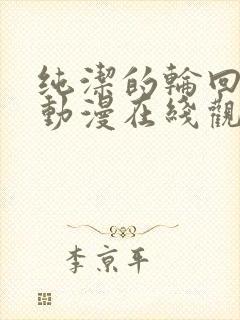 純潔的輪回
動漫在綫觀
李京平